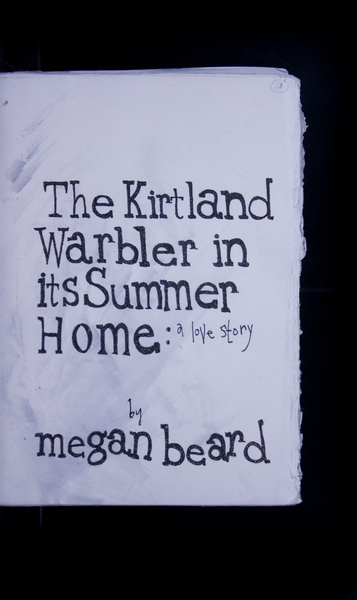 The Kirtland
Warbler in
its Summer
Home: a love story
by
megan beard